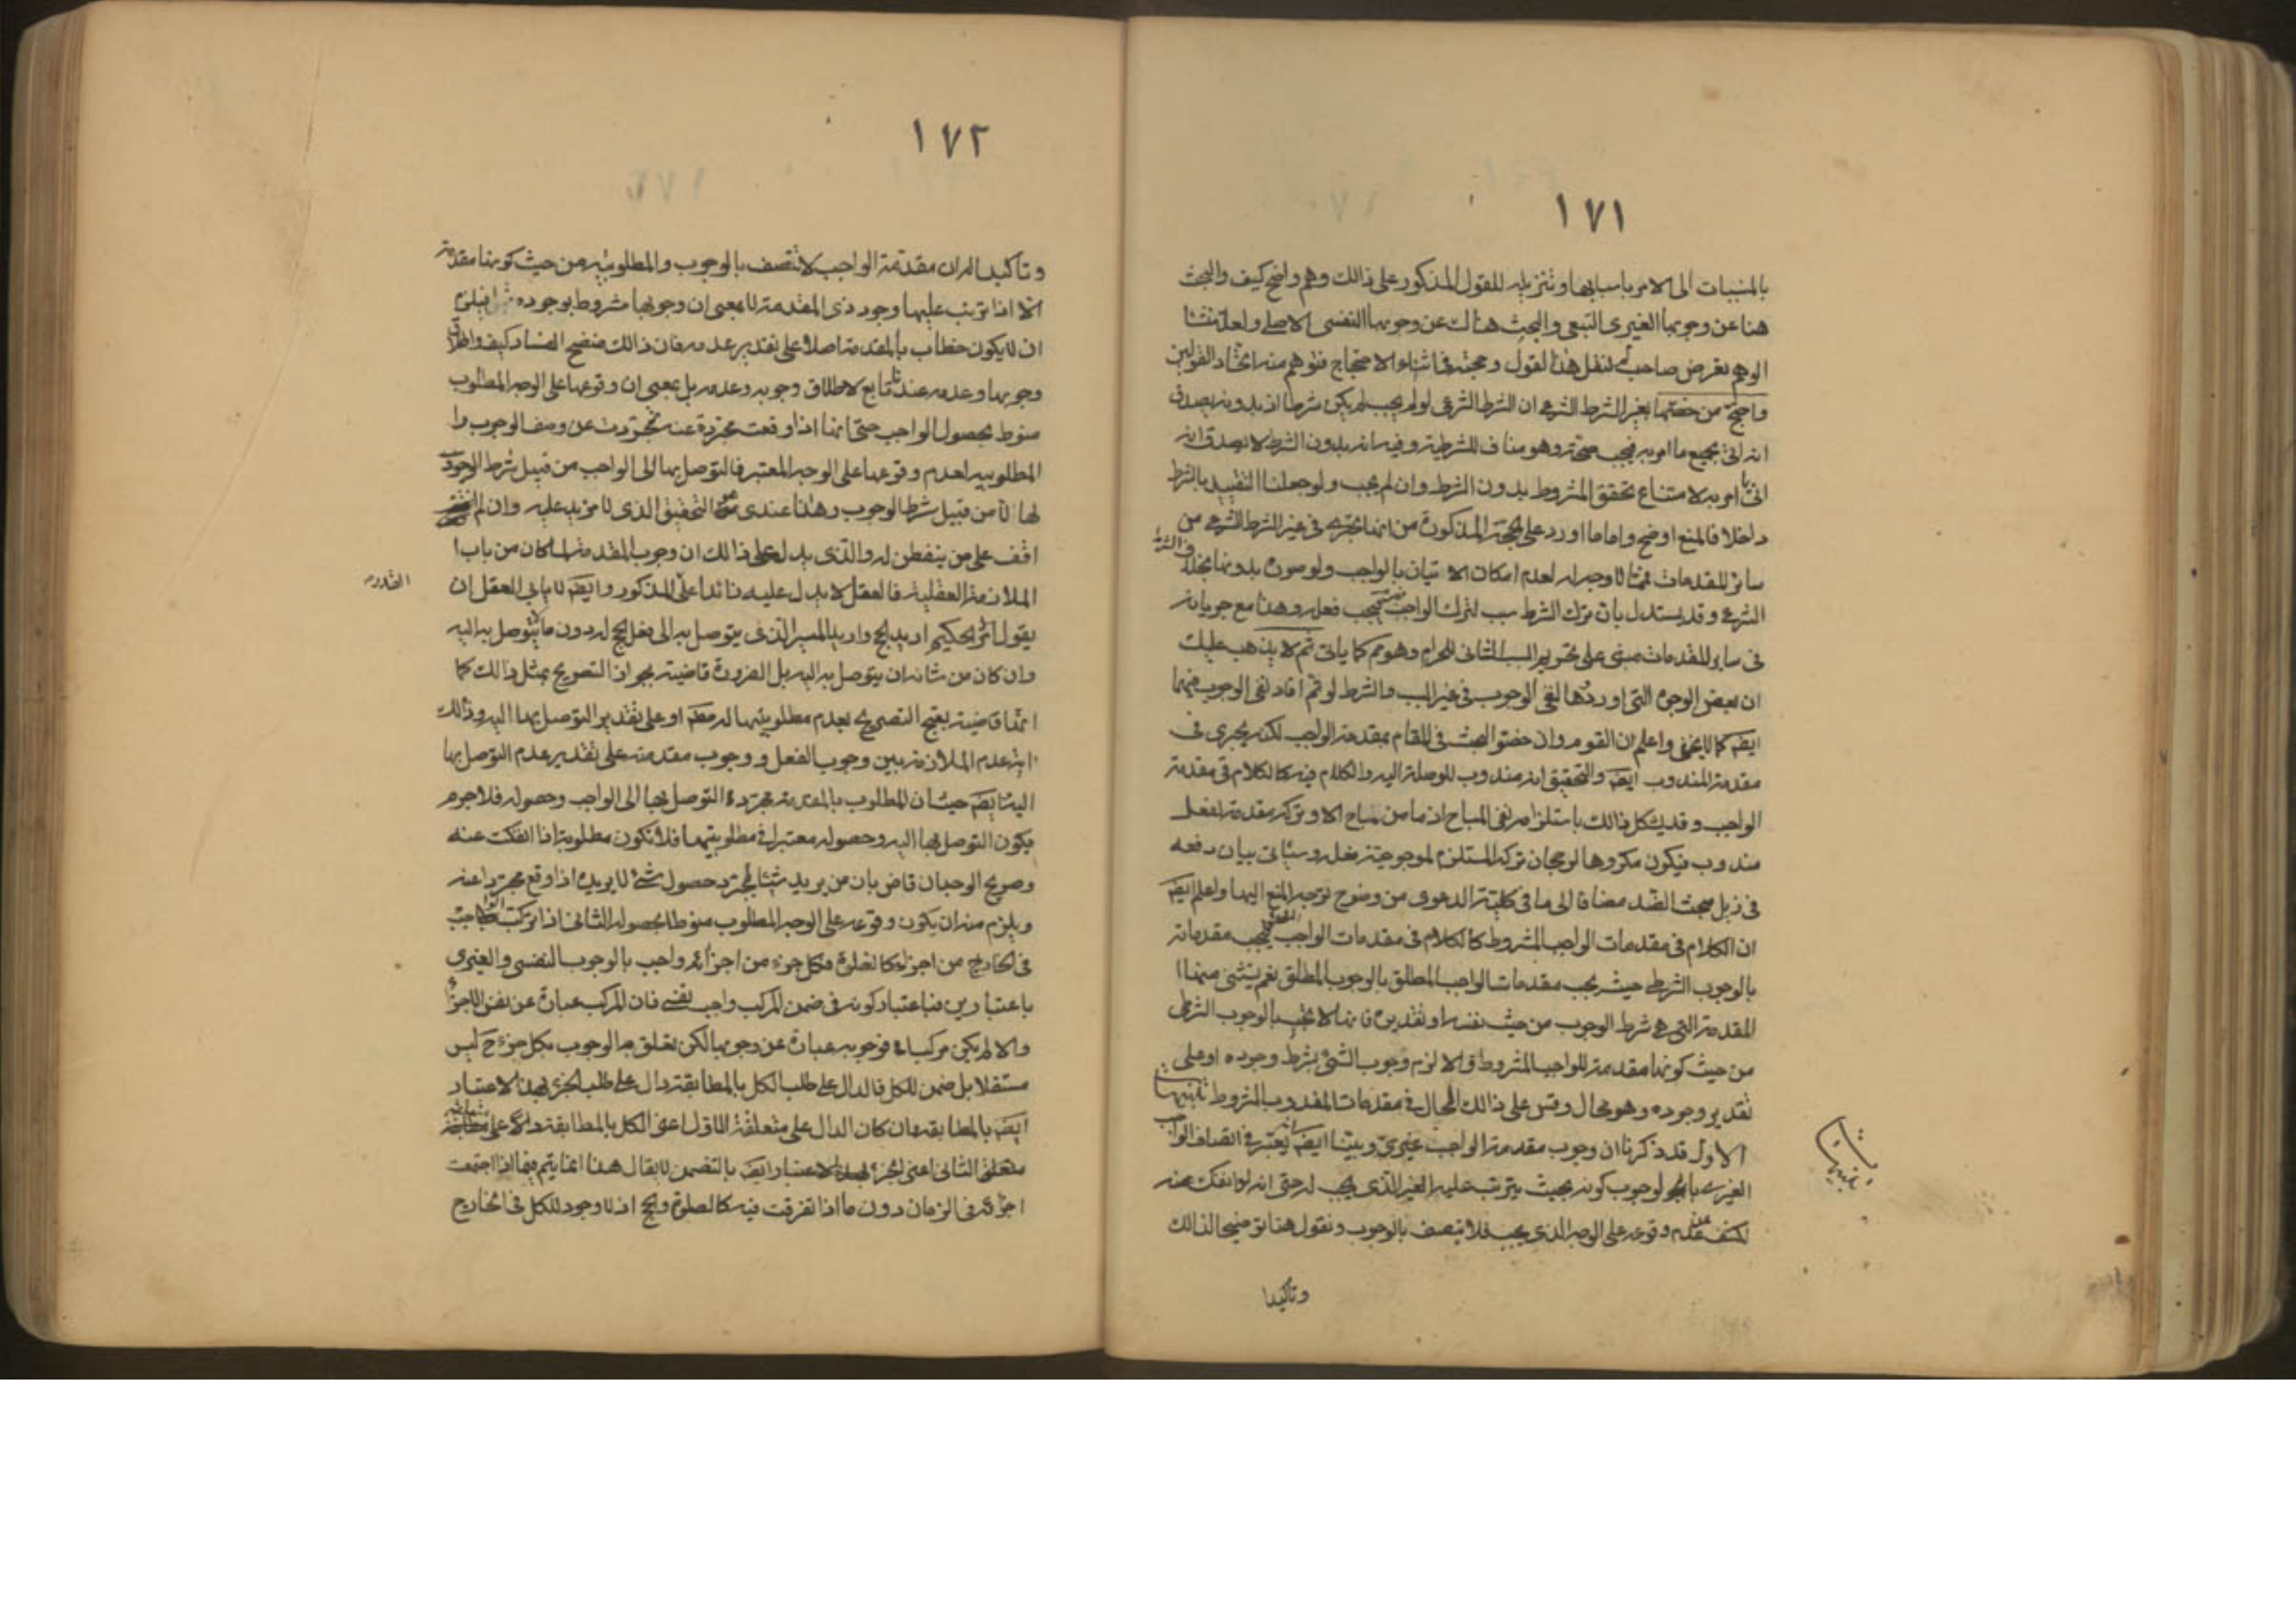 ١٧١
بالمسببات الى الامر باسبابها وتنزيله للقول المذكور على ذالك وهم واضح كيف والبحث
هنا عن وجوبها الغيرى التبعى والبحث هناك عن وجوبها النفسى الاصلى ولعل منشأ
الوهم تعرض صاحب لنقل هذا القول وحجته فى اثناء الاحتجاج فتوهم منه اتحاد القولين
واحتج من خصها بغير الشرط الشرعى ان الشرط الشرعى لو لم يجب لم يكن شرطا اذ بدونه يصدق
انه اتى بجميع ما امر به فيجب صحته وهو مناف للشرطية وفيه انه بدون الشرط لا يصدق انه
اتى بما امر به لامتناع تحقق المشروط بدون الشرط وان لم يجب ولو جعلنا التقييد بالشرط
داخلا فالمنع اوضح واما ما اورد على الحجة المذكورة من انها تجرى فى غير الشرط الشرعى من
سائر المقدمات فمما لا وجه له لعدم امكان الاتيان بالواجب ولو صورة بدونها بخلاف الشرط
الشرعى وقد يستدل بان ترك الشرط سبب لترك الواجب فيجب فعله وهذا مع جريانه
فى ساير المقدمات مبنى على تحريم السبب الثانى للحرام وهو تم كما ياتى ثم لا يذهب عليك
ان بعض الوجوه التى اوردها لنفى الوجوب فى غير السبب والشرط لو تم افاد لنفى الوجوب فيهما
ايضا كما لا يخفى واعلم ان القوم وان خصوا البحث فى المقام بمقدمة الواجب لكنه يجرى فى
مقدمة المندوب ايضا والتحقيق انه مندوب للوصلة اليه والكلام فيه كالكلام فى مقدمة
الواجب وقد يشكل ذالك باستلزامه نفى المباح اذ ما من مباح الا وتركه مقدمة لفعل
مندوب فيكون مكروها لرجحان تركه المستلزم لمرجوحية فعله وسياتى بيان دفعه
فى ذيل مبحث الضد مضافا الى ما فى كلية الدعوى من وضوح توجه المنع اليها واعلم ايضا
ان الكلام فى مقدمات الواجب المشروط كالكلام فى مقدمات الواجب المطلق فيجب مقدماته
بالوجوب الشرطى حيث يجب مقدمات الواجب المطلق بالوجوب المطلق نعم يستثنى منها
المقدمة التى هى شرط الوجوب من حيث نفسه او تقديره فانها لا تجب بالوجوب الشرطى
من حيث كونها مقدمة للواجب المشروط والا لزم وجوب الشىء بشرط وجوده او على
تقدير وجوده وهو محال وقس على ذالك الحال فى مقدمات المندوب المشروط تنبيهات
الاول قد ذكرنا ان وجوب مقدمة الواجب غيرى وبينا ايضا انه يعتبر فى اتصاف الواجب
الغيرى بالوجوب كونه بحيث يترتب عليه الغير الذى يجب له حتى انه لو انفك عنه
لكشف عن عدم وقوعه على الوجه الذى يجب فلا يتصف بالوجوب ونقول هنا توضيحا لذالك
تنبيهات
وتاكيدا
١٧٢
وتاكيدا له ان مقدمة الواجب لا تتصف بالوجوب والمطلوبية من حيث كونها مقدمة
الا اذا ترتب عليها وجود ذى المقدمة لا بمعنى ان وجوبها مشروط بوجوده فيلزم
ان لا يكون خطاب بالمقدمة اصلا على تقدير عدمه فان ذالك متضح الفساد كيف واطلاق
وجوبها وعدمه عندنا تابع لاطلاق وجوبه وعدمه بل بمعنى ان وقوعها على الوجه المطلوب
منوط بحصول الواجب حتى انها اذا وقعت مجردة عنه تجردت عن وصف الوجوب وا
المطلوبية لعدم وقوعها على الوجه المعتبر فالتوصل بها الى الواجب من قبيل شرط الوجود
لها لا من قبيل شرط الوجوب وهذا عندى هو التحقيق الذى لا مزيد عليه وان لم
اقف على من يتفطن له والذى يدل على ذالك ان وجوب المقدمة لما كان من باب ا
الملازمة العقلية فالعقل لا يدل عليه زائدا على المذكور وايضا لا يابى العقل ان
يقول الامر الحكيم اريد الحج واريد المسير الذى يتوصل به الى فعل الحج له دون ما لا يتوصل به اليه
وان كان من شانه ان يتوصل به اليه بل الضرورة قاضية بجواز التصريح بمثل ذالك كما
انها قاضية بقبح التصريح بعدم مطلوبيتها له مطلقا او على تقدير التوصل بها اليه وذالك
اية عدم الملازمة بين وجوب الفعل ووجوب مقدمته على تقدير عدم التوصل بها
اليه وايضا حيث ان المطلوب بالمقدمة مجرد التوصل بها الى الواجب وحصوله فلا جرم
يكون التوصل بها اليه وحصوله معتبرا فى مطلوبيتها فلا تكون مطلوبة اذا انفكت عنه
وصريح الوجدان قاض بان من يريد شيئا لمجرد حصول شىء لا يريده اذا وقع مجردا عنه
ويلزم منه ان يكون وقوعه على الوجه المطلوب منوطا بحصوله الثانى اذا تركب الواجب
فى الخارج من اجزاء كالصلوة فكل جزء من اجزائه واجب بالوجوب النفسى والغيرى
باعتبارين فباعتبار كونه فى ضمن المركب واجب نفسى فان المركب عبارة عن نفس الاجزاء
والا لم يكن مركبا فوجوبه عبارة عن وجوبها لكن تعلق الوجوب بكل جزء ح ليس
مستقلا بل ضمن الكل فالدال على طلب الكل بالمطابقة دال على طلب الجزء بهذا الاعتبار
ايضا بالمطابقة وان كان الدال على متعلقة الاول اعنى الكل بالمطابقة دالا على
متعلق الثانى اعنى الجزء بهذا الاعتبار ايضا بالتضمن لا يقال هذا انما يتم فيما اذا اجتمعت
اجزائه فى الزمان دون ما اذا تفرقت فيه كالصلوة والحج اذ لا وجود للكل فى الخارج